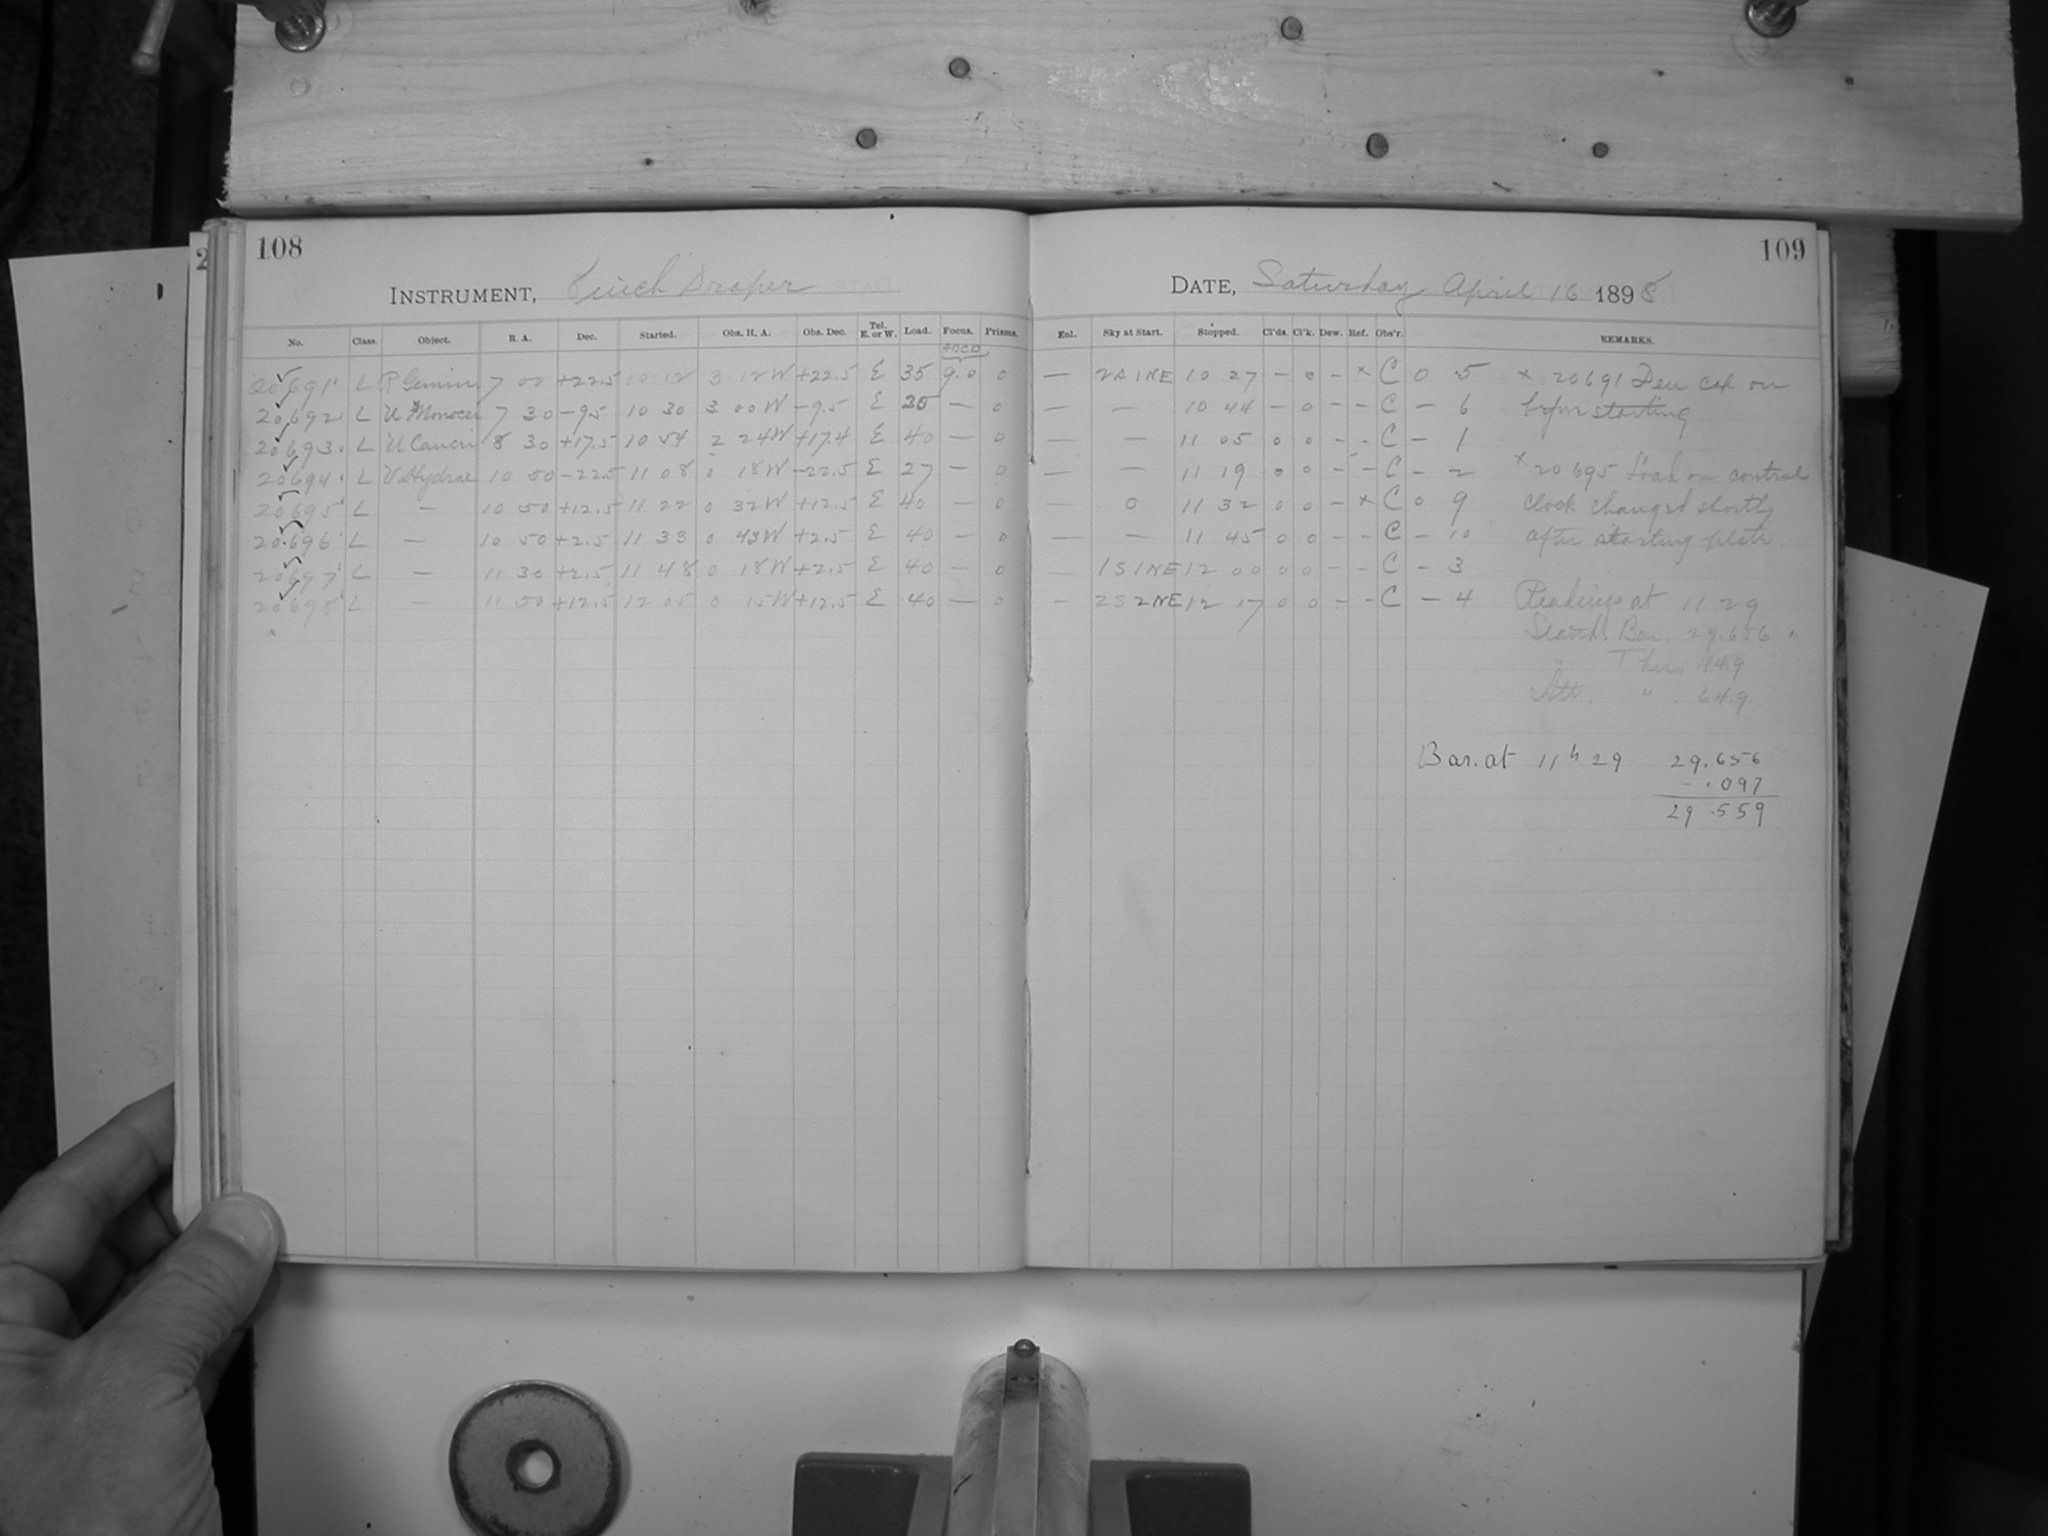 108
109
INSTRUMENT, 8 inch Draper
DATE, Saturday April 16 1898
No. Class. Object. R. A. Dec. Started. Obs. H. A. Obs. Dec. Tel. E. or W. Load. Focus. Prisms. Enl. Sky at Start. Stopped. Cl'ds. Cl'k. Dew. Ref. Obs'r. REMARKS.
ABCD
20691 L R Gemin 7 00 +22.5 10 12 3 12W +22.5 E 35 9.0 0 — 2A1NE 10 27 – 0 – × C 0 5 × 20691 Dew cap on
20692 L U Monocer 7 30 –9.5 10 30 3 00W –9.5 E 30 — 0 — — 10 44 – 0 – – C – 6 before starting
20693 L U Cancri 8 30 +17.5 10 54 2 24W +17.4 E 40 — 0 — — 11 05 0 0 – – C – 1
20694 L V Hydrae 10 50 –22.5 11 08 0 18W –22.5 E 27 — 0 — — 11 19 0 0 – – C – 2 × 20695 Load on control
20695 L — 10 50 +12.5 11 22 0 32W +12.5 E 40 — 0 — 0 11 32 0 0 – × C 0 9 clock changed shortly
20696 L — 10 50 +2.5 11 33 0 43W +2.5 E 40 — 0 — — 11 45 0 0 – – C – 10 after starting plate.
20697 L — 11 30 +2.5 11 48 0 18W +2.5 E 40 — 0 — 1S1NE 12 00 0 0 – – C – 3
20698 L — 11 50 +12.5 12 05 0 15W +12.5 E 40 — 0 – 2S2NE 12 17 0 0 – – C – 4 Readings at 11 29
Bar. 29.656
" Ther. 44.9
Att. " 64.9
Bar. at 11h 29 29.656
– .097
29.559